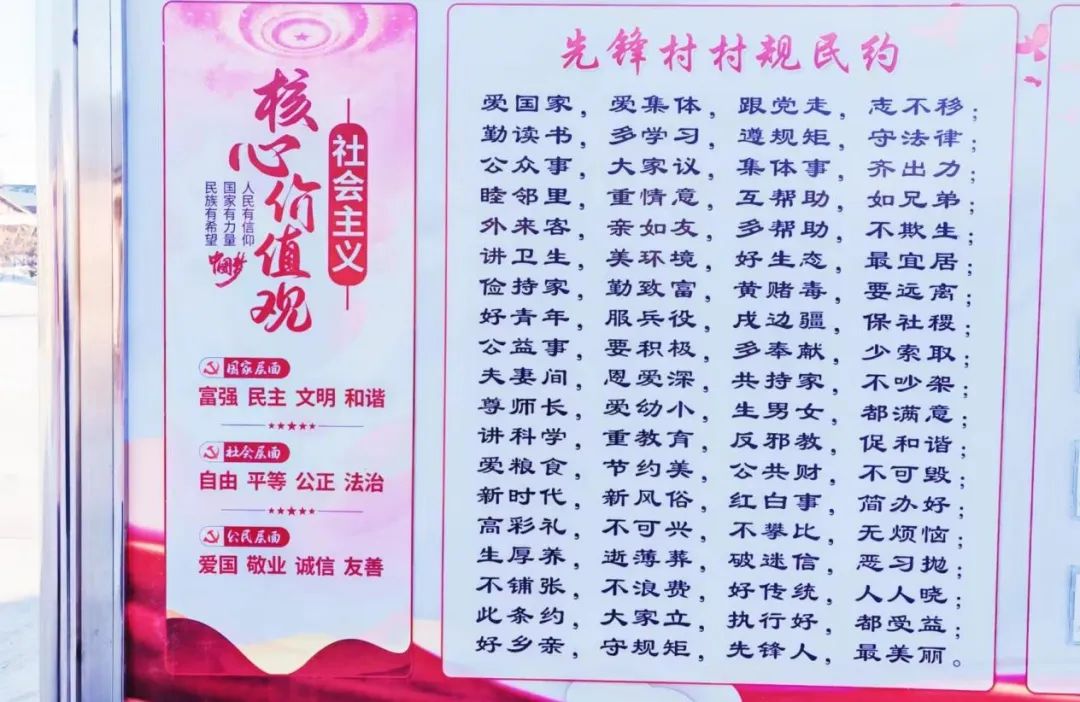 社会主义
核心价值观
人民有信仰
国家有力量
民族有希望
中国梦
国家层面
富强 民主 文明 和谐
社会层面
自由 平等 公正 法治
公民层面
爱国 敬业 诚信 友善
先锋村村规民约
爱国家，爱集体，跟党走，志不移；
勤读书，多学习，遵规矩，守法律；
公众事，大家议，集体事，齐出力；
睦邻里，重情意，互帮助，如兄弟；
外来客，亲如友，多帮助，不欺生；
讲卫生，美环境，好生态，最宜居；
俭持家，勤致富，黄赌毒，要远离；
好青年，服兵役，戍边疆，保社稷；
公益事，要积极，多奉献，少索取；
夫妻间，恩爱深，共持家，不吵架；
尊师长，爱幼小，生男女，都满意；
讲科学，重教育，反邪教，促和谐；
爱粮食，节约美，公共财，不可毁；
新时代，新风俗，红白事，简办好；
高彩礼，不可兴，不攀比，无烦恼；
生厚养，逝薄葬，破迷信，恶习抛；
不铺张，不浪费，好传统，人人晓；
此条约，大家立，执行好，都受益；
好乡亲，守规矩，先锋人，最美丽。